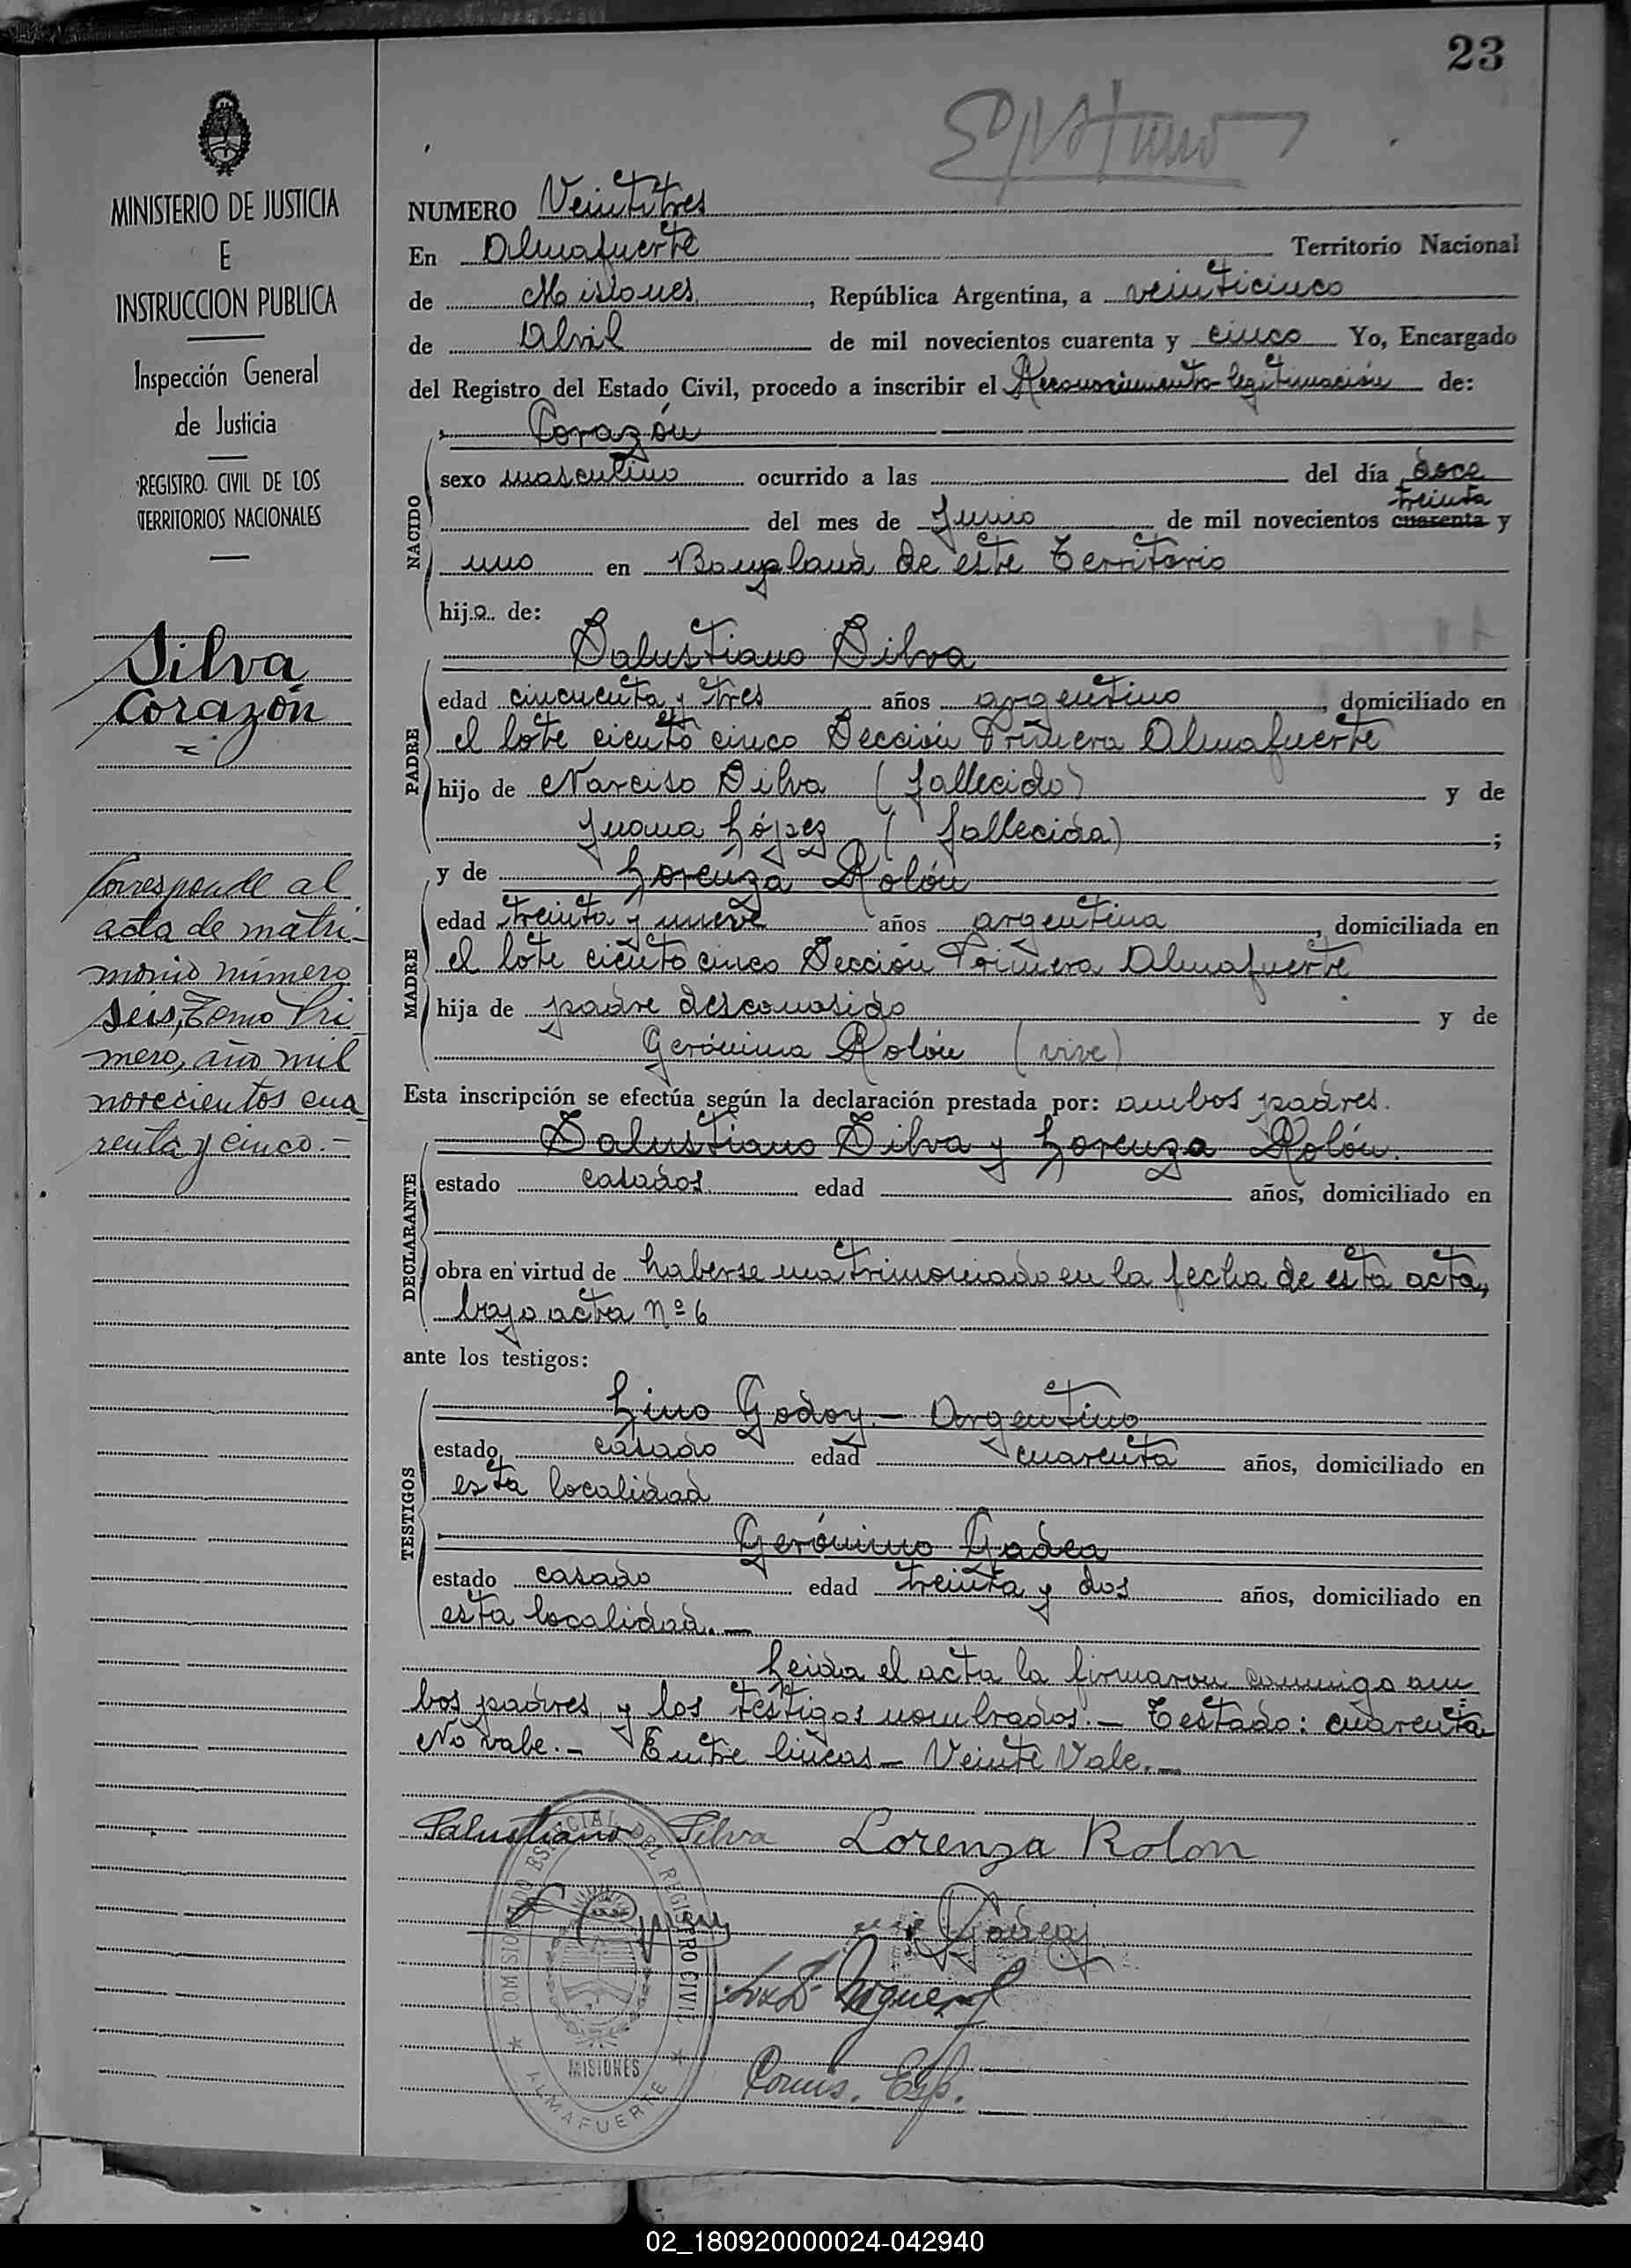 23
MINISTERIO DE JUSTICIA
E
INSTRUCCION PUBLICA
Inspección General
de Justicia
REGISTRO CIVIL DE LOS
TERRITORIOS NACIONALES
Silva
Corazón
Corresponde al
acta de matri-
monio número
seis, Tomo Pri
mero, año mil
novecientos cua
renta y cinco.-
NUMERO Veintitres
En Almafuerte Territorio Nacional
de Misiones, República Argentina, a veinticinco
de Abril de mil novecientos cuarenta y cinco Yo, Encargado
del Registro del Estado Civil, procedo a inscribir el Reconocimiento-legitimación de:
Corazón
NACIDO
sexo masculino ocurrido a las del día doce
treinta
del mes de Junio de mil novecientos cuarenta y
uno en Bonpland de este Territorio
hijo de:
Salustiano Silva
PADRE
edad cincuenta y tres años argentino, domiciliado en
el lote ciento cinco Sección Primera Almafuerte
hijo de Narciso Silva (fallecido) y de
Juana López (fallecida);
y de Lorenza Rolón
MADRE
edad treinta y nueve años argentina, domiciliada en
el lote ciento cinco Sección Primera Almafuerte
hija de padre desconosido y de
Gerónima Rolón (vive)
Esta inscripción se efectúa según la declaración prestada por: ambos padres.
Salustiano Silva y Lorenza Rolón.
DECLARANTE
estado casados edad años, domiciliado en
obra en virtud de haberse matrimoniado en la fecha de esta acta,
bajo acta Nº 6
ante los testigos:
Lino Godoy.- Argentino
TESTIGOS
estado casado edad cuarenta años, domiciliado en
esta localidad
Gerónimo Gadea
estado casado edad treinta y dos años, domiciliado en
esta localidad.-
Leida el acta la firmaron conmigo am
bos padres y los testigos nombrados.- Testado: cuarenta
No vale.- Entre lineas - Veinte Vale.-
Salustiano Silva Lorenza Rolon
COMISIONADO ESPECIAL DEL REGISTRO CIVIL
MISIONES
ALMAFUERTE
Comis. Esp.
02_180920000024-042940